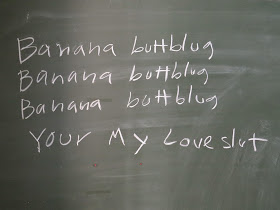 Banana buttblug
Banana buttblug
Banana buttblug
Your My Love slut